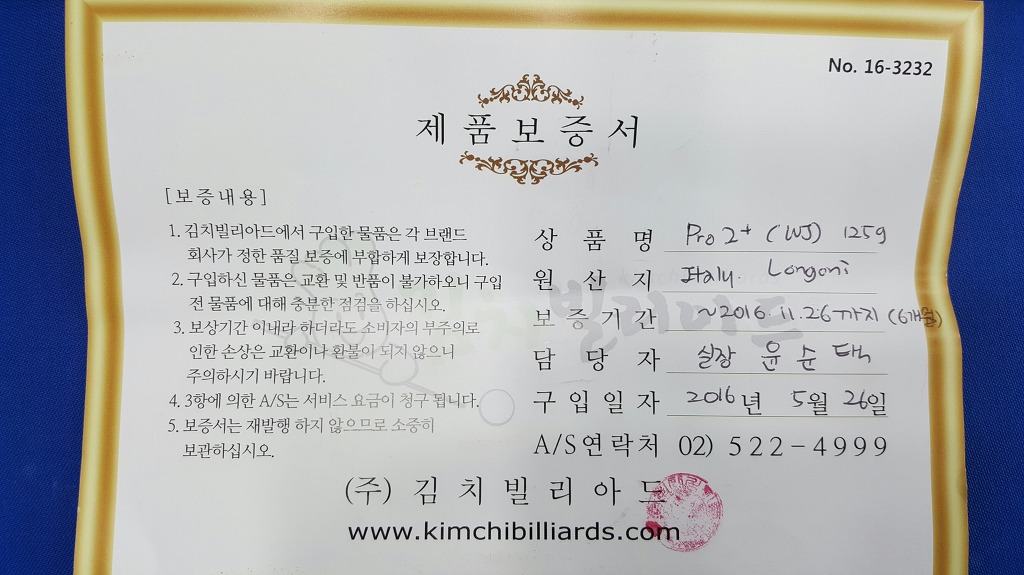 No. 16-3232
제품보증서
[보증내용]
1. 김치빌리아드에서 구입한 물품은 각 브랜드
회사가 정한 품질 보증에 부합하게 보장합니다.
2. 구입하신 물품은 교환 및 반품이 불가하오니 구입
전 물품에 대해 충분한 점검을 하십시오.
3. 보상기간 이내라 하더라도 소비자의 부주의로
인한 손상은 교환이나 환불이 되지 않으니
주의하시기 바랍니다.
4. 3항에 의한 A/S는 서비스 요금이 청구 됩니다.
5. 보증서는 재발행 하지 않으므로 소중히
보관하십시오.
상품명 Pro 2+ (WJ) 125g
원산지 Italy. Longoni
보증기간 ~2016. 11. 26까지 (6개월)
담당자 실장 윤순택
구입일자 2016년 5월 26일
A/S연락처 02) 522-4999
(주) 김치빌리아드
www.kimchibilliards.com